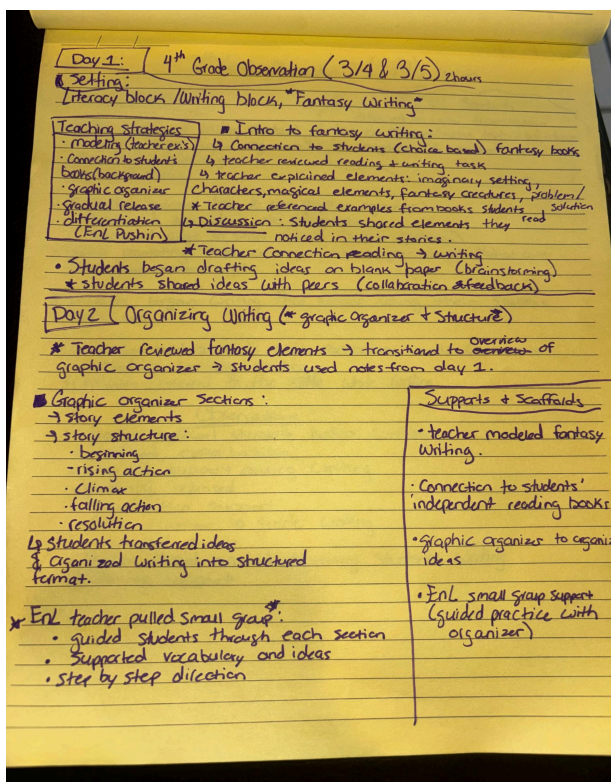 Day 1: 4th Grade Observation (3/4 & 3/5) 2hours
Setting:
Literacy block / Writing block, *Fantasy Writing*
Teaching Strategies
· modeling (teacher ex's)
· Connection to students
books (background)
· graphic organizer
· gradual release
· differentiation
(EnL Pushin)
■ Intro to fantasy writing:
↳ Connection to students (choice based) fantasy books
↳ teacher reviewed reading + writing task
↳ teacher explained elements: imaginary setting,
characters, magical elements, fantasy creatures, problem/
solution
* Teacher referenced examples from books students read
↳ Discussion: Students shared elements they
noticed in their stories.
* Teacher Connection reading → writing
• Students began drafting ideas on blank paper (brainstorming)
* students shared ideas with peers (collaboration & feedback)
Day 2 Organizing Writing (* graphic organizer + structure*)
* Teacher reviewed fantasy elements → transitioned to overview of
graphic organizer → students used notes from day 1.
■ Graphic organizer Sections:
→ story elements
→ story structure:
· beginning
- rising action
· Climax
· falling action
· resolution
↳ Students transferred ideas
& organized writing into structured
format.
* EnL teacher pulled small group*:
• guided students through each section
• Supported vocabulary and ideas
• step by step direction
Supports & Scaffolds
• teacher modeled fantasy
writing.
· Connection to students'
independent reading books
• graphic organizer to organiz
ideas
• EnL small group support
(guided practice with
organizer)